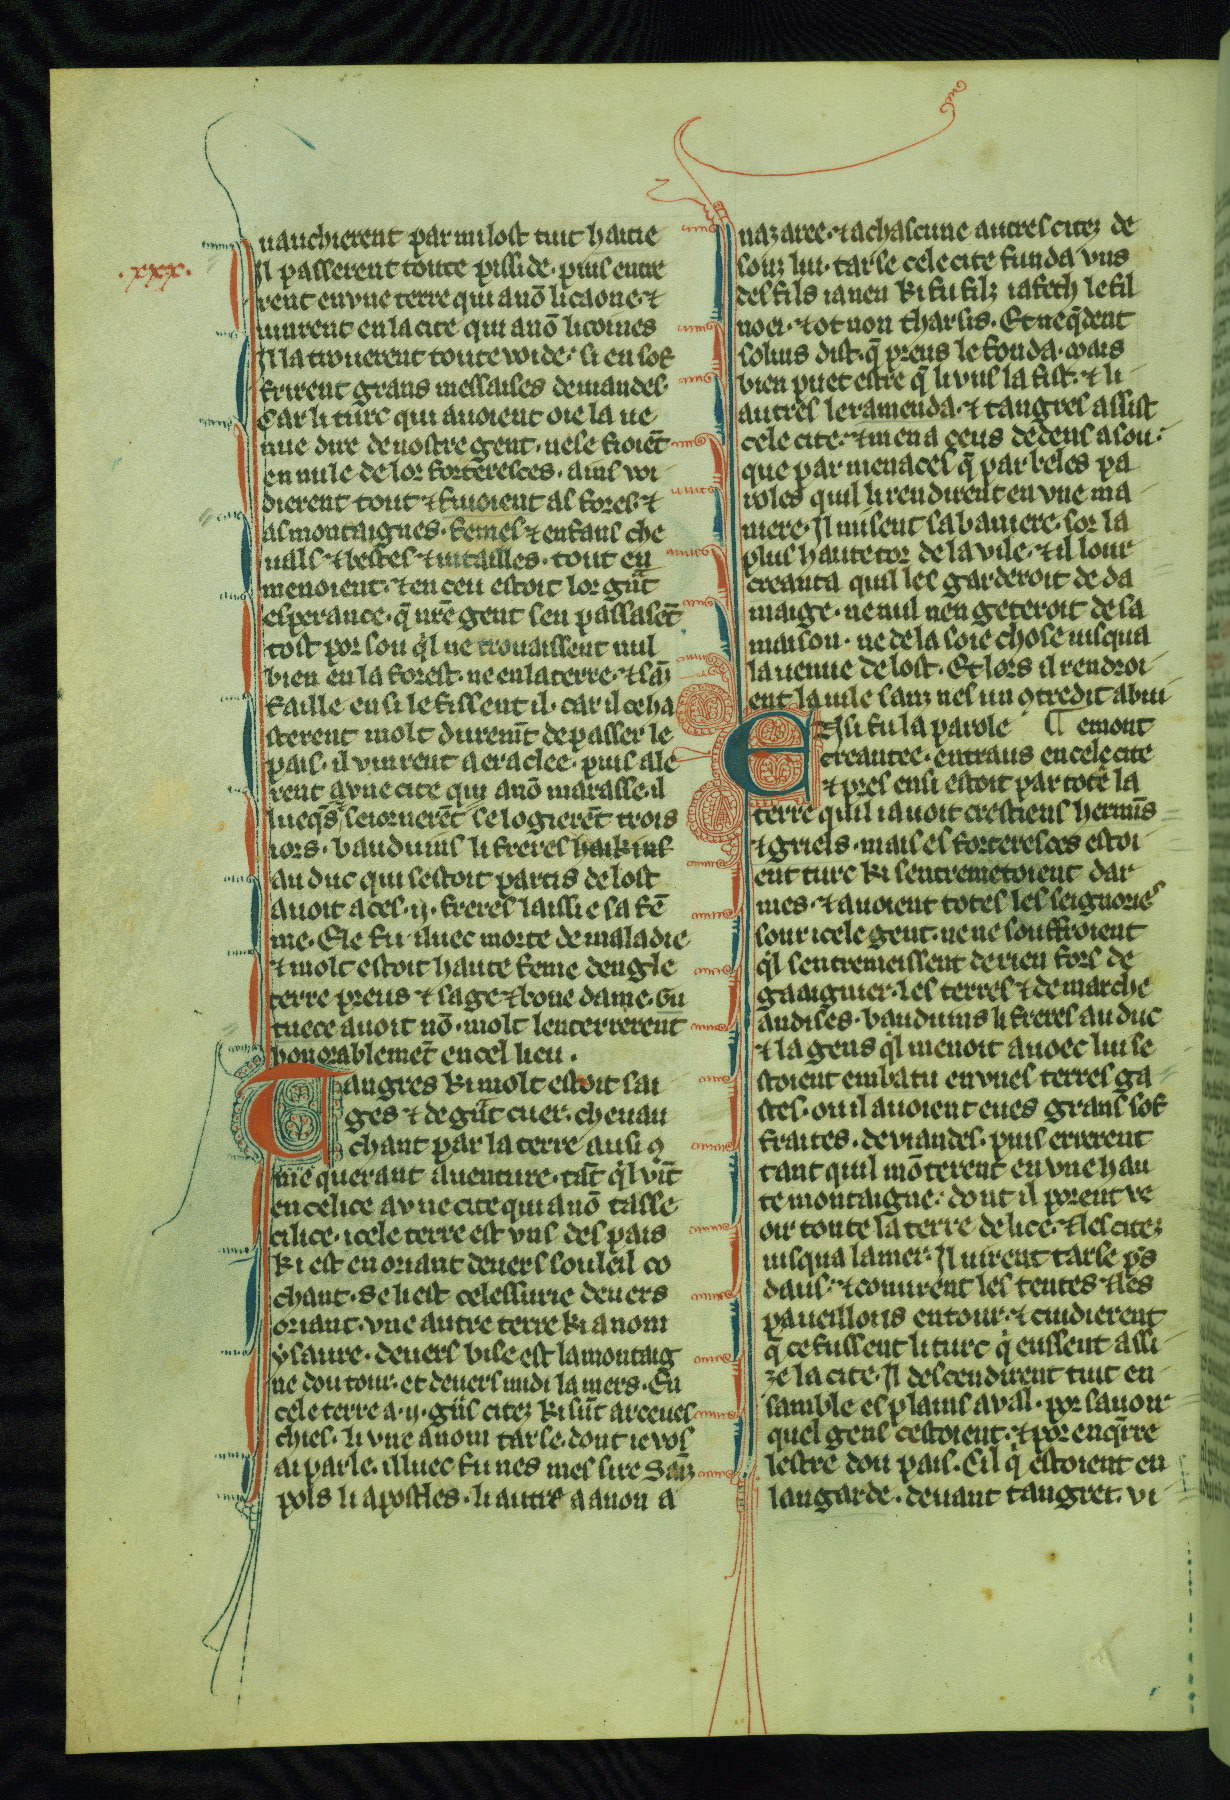 .xxx.
uauchierent par mi lost tuit haitie
Il passerent toute pisside. puis entre
rent en vne terre qui a nō licaone. ⁊
vinrent en la cite qui a nō licoines
Il la trouerent toute voide. si en sof
frirent grans mesaises de viandes.
Car li turc qui auoient oie la ue
nue dire de nostre gent. ne se fioiēt
en nule de lor forteresces. ains voi
dierent tout ⁊ fuioient as fores. ⁊
as montaignes. femes ⁊ enfans che
uals ⁊ bestes ⁊ uitailles. tout en
menoient. ⁊ en ceu estoit lor gūt
esperance. q̄ nr̄e gent sen passasēt
tost por sou q̄l ne trouaissent nul
bien en la forest. ne en la terre. ⁊ sāz
faille ensi le fissent il. car il ce ha
sterent molt durem̄t de passer le
pais. il vinrent a eraclee. puis ale
rent a vne cite qui a nō marasse. il
lueq̄s seiornerēt se logierēt trois
iors. bauduins li freres
au duc qui sestoit partis de lost
auoit a ces .ij. freres laissie sa fē
me. Ele fu iluec morte de maladie
⁊ molt estoit haute feme dengle
terre preus ⁊ sage ⁊ bone dame. Gu
tuece auoit nō. molt lenterrerent
honorablemēt en cel lieu.
Tangres ki molt estoit sai
ges ⁊ de gūt cuer. cheuau
chant par la terre ausi 9
me querant auenture. tāt q̄l vīt
en celice a vne cite qui a nō tasse
cilice. icele terre est vns des pais
ki est en oriant deuers souleil co
chant. Se li est celessurie deuers
oriant. vne autre terre ki a nom
ysaure. deuers bise est la montaig
ne dou tour. et deuers midi la mers. En
cele terre a .ij. gūs citez ki sūt arceues
chies. li vne a nom tarse. dont ie vos
ai parle. illuec fu nes mes sire Sāz
pols li apostles. li autre a a non a
nazaree. ⁊ a chascune autres citez de
souz lui. tarse cele cite funda vns
des fils ianeu ki fu filz iafeth le fil
noei. ⁊ ot non tharsis. Et neq̄dent
solius dist. q̄ preus le fonda. mais
bien puet estre q̄ li vns la fist. ⁊ li
autres le ramenda. ⁊ tangres assist
cele cite. ⁊ mena ceus dedens a sou.
que par menaces q̄ par beles pa
roles quil li rendirent en vne ma
niere. Il misent sa baniere. sor la
plus haute tor de la vile. ⁊ il lour
creanta quil les garderoit de da
maige. ne nul nen geteroit de sa
maison. ne de la soie chose iusqua
la uenue de lost. Et lors il rendroi
ent la uile sanz nes un 9tredit a bui
Ensi fu la parole ¶ emont
creantee. entrans en cele cite
⁊ pres ensi estoit par tote la
terre quil i auoit crestiens hermīs
⁊ griels. mais es forteresces estoi
ent turc ki sentremetoient dar
mes. ⁊ auoient totes les seignories
sour icele gent. ne ne souffroient
q̄l sentremeissent de rien fors de
gaaignier. les terres ⁊ de marche
andises. bauduins li freres au duc
⁊ la gens q̄l menoit auoec lui se
stoient embatu en vnes terres ga
stes. ou il auoient eues grans sof
fraites. de viandes. puis errerent
tant quil mōterent en vne hau
te montaigne. dont il porent ve
oir toute la terre de lice. ⁊ les citez
iusqua la mer. Il uirent tarse p̄s
dans. ⁊ conurent les tentes ⁊ les
paueillons entour. ⁊ cuidierent
q̄ ce fussent li turc q̄ eussent assi
ze la cite. Il descendirent tuit en
samble es plains aual. por sauoir
quel gens cestoient. ⁊ por enq̄rre
lestre dou pais. Cil q̄ estoient en
langarde. deuant tangret. vi